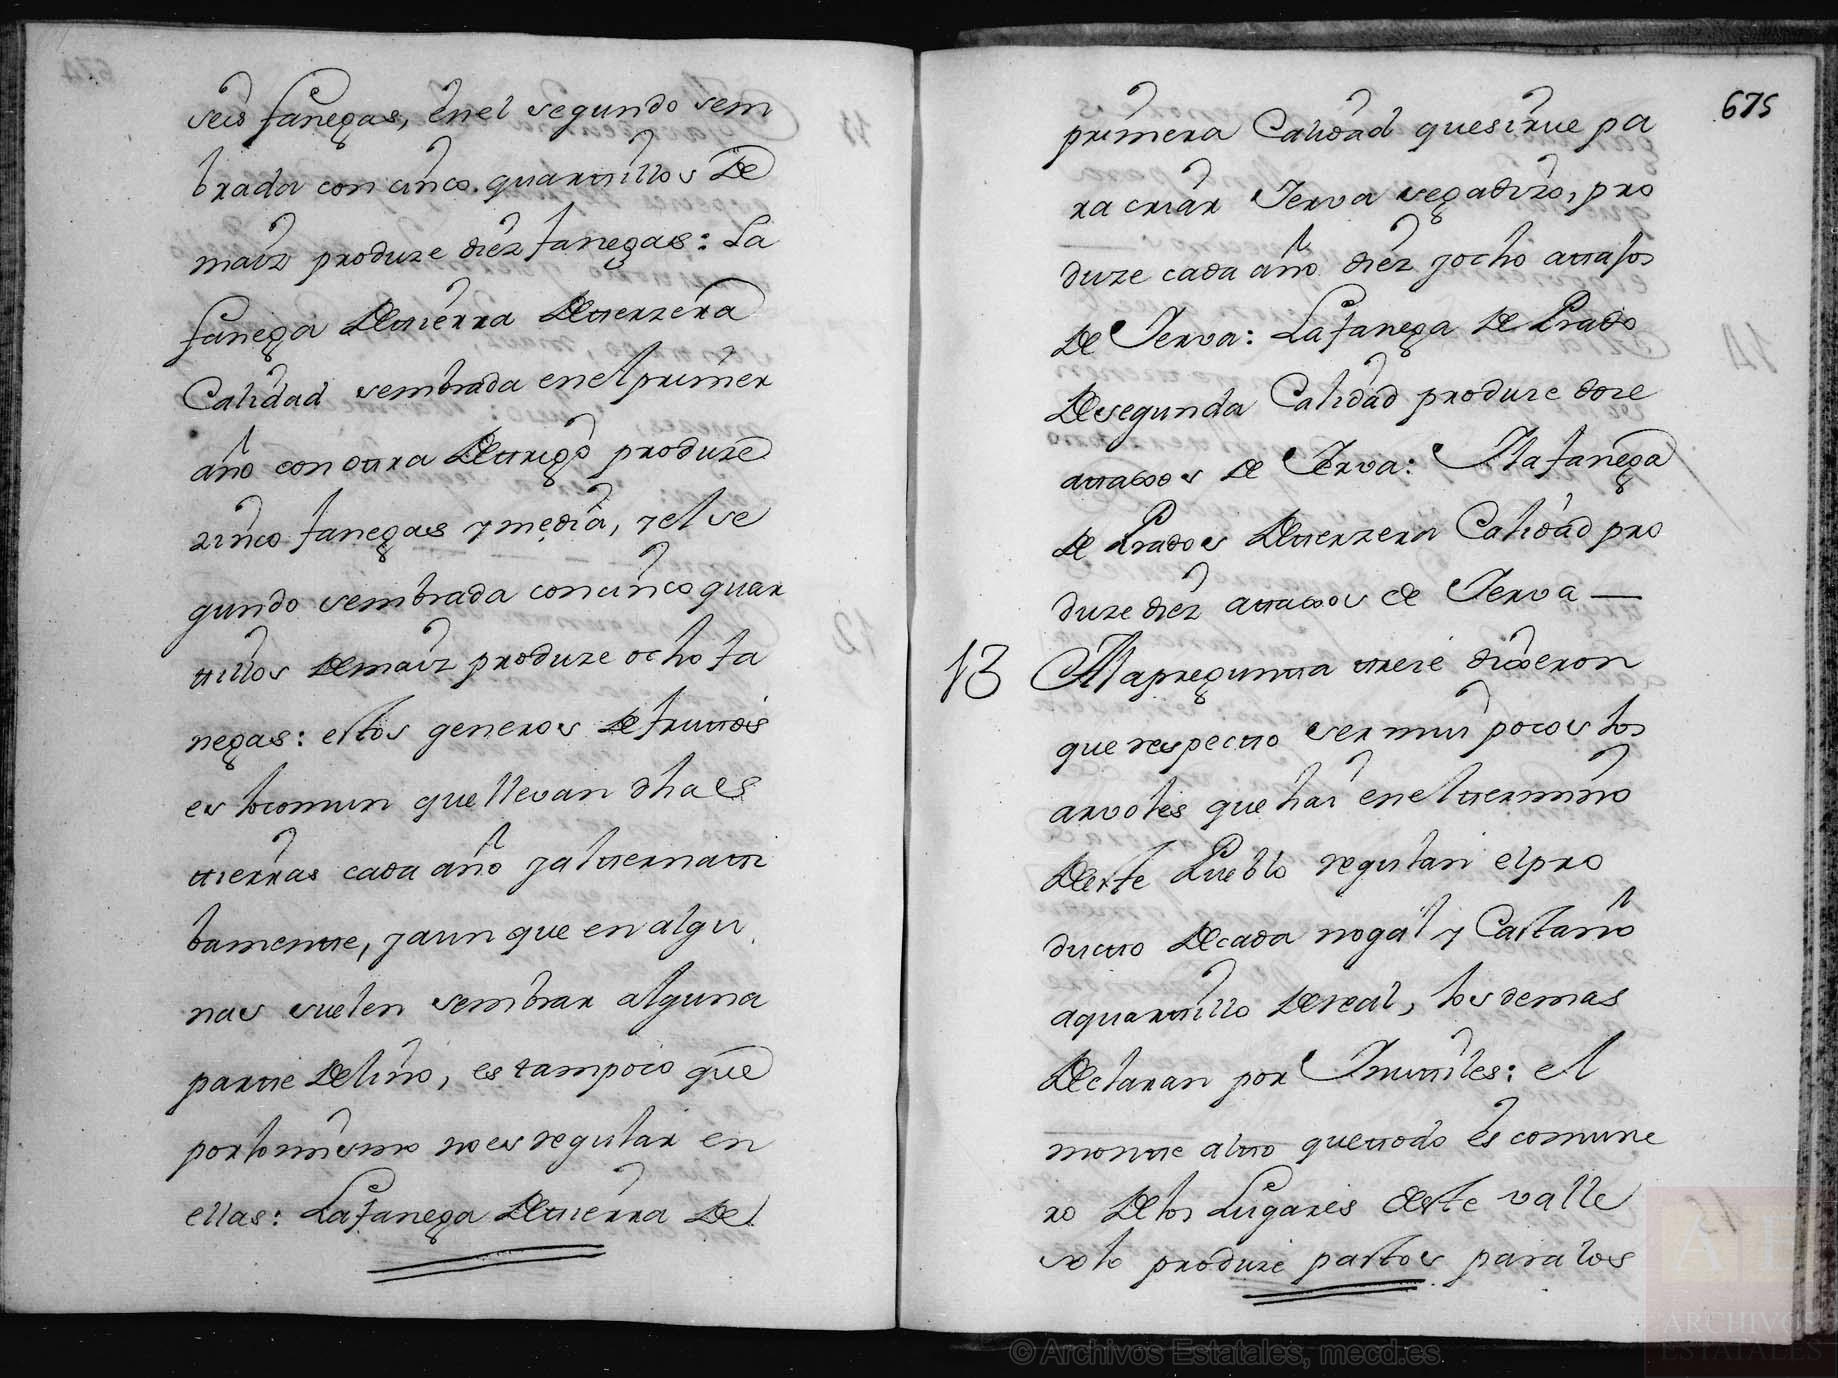 seis fanegas, en el segundo sem
brada con cinco quartillos de
maiz produze diez fanegas: La
fanega de tierra de terzera
Calidad sembrada en el primer
año con otra de trigo produze
zinco fanegas y media, y el se
gundo sembrada con cinco quar
tillos de maiz produze ocho fa
negas: estos generos de frutos
es lo comun que llevan dhas
tierras cada año y alternati
bamente, y aunque en algu
nas suelen sembrar alguna
parte de lino, es tan poco que
por lo mismo no es regular en
ellas: La fanega de tierra de
675
primera Calidad que sirve pa
ra criar Yerva segadizo, pro
duze cada año diez y ocho attasos
de Yerva: La fanega de Prado
de segunda Calidad produze doze
attaxos de Yerva: Y la fanega
de Prados de terzera Calidad pro
duze diez attaxos de Yerva —
13 A la pregunta treze dixeron
que respecto ser mui pocos los
arboles que hai en el termino
deste Pueblo regulan el pro
ducto de cada nogal y Castaño
a quartillo de real, los demas
declaran por Inutiles: el
monte alto que todo es comune
ro de los Lugares deste valle
solo produze pastos para los
© Archivos Estatales, mecd.es
AE
ARCHIVOS
ESTATALES